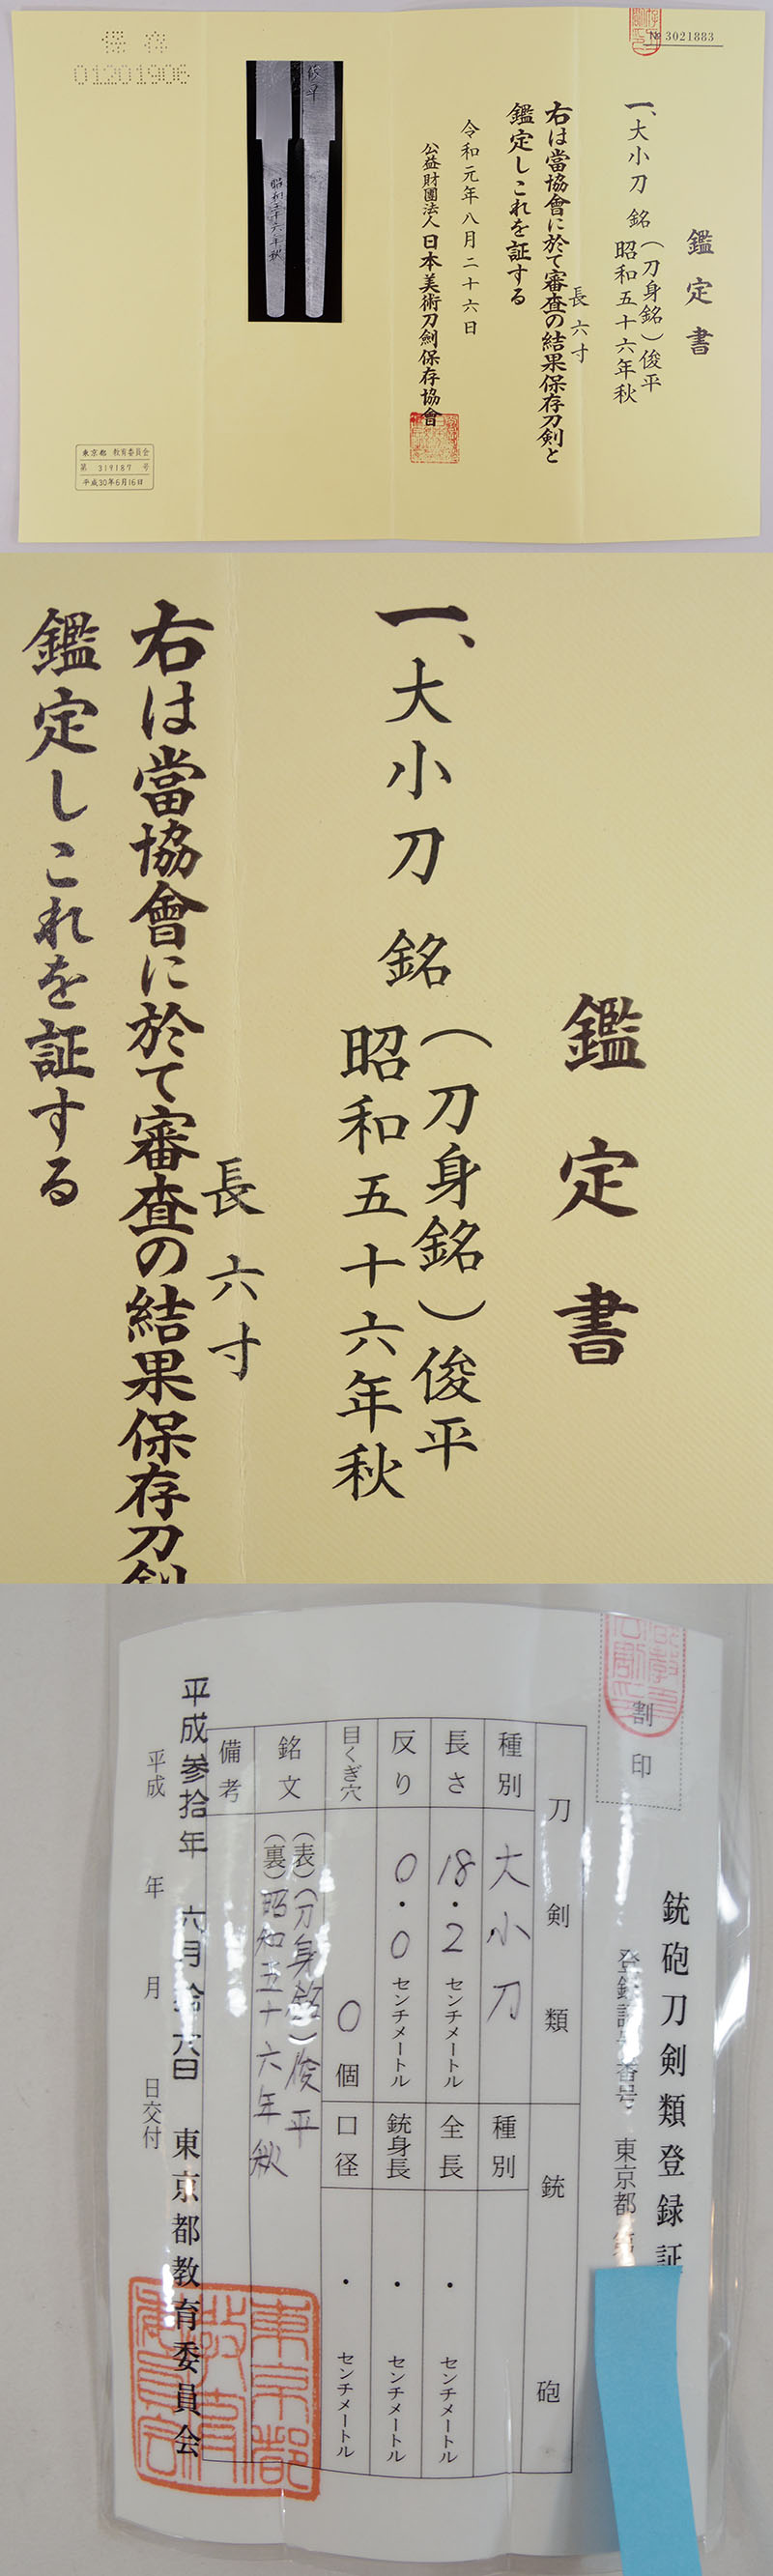 № 3021883
鑑定書
一、大小刀 銘
（刀身銘）俊平
昭和五十六年秋
長 六寸
右は當協會に於て審査の結果保存刀剣と
鑑定しこれを証する
令和元年八月二十六日
公益財團法人 日本美術刀劍保存協會
俊平
昭和五十六年秋
保存
01201906
東京都 教育委員会
第 319187 号
平成30年6月16日
鑑定書
一、大小刀 銘
（刀身銘）俊平
昭和五十六年秋
長 六寸
右は當協會に於て審査の結果保存刀剣
鑑定しこれを証する
銃砲刀剣類登録証
割印
登録証番号 東京都 第
刀剣類 銃砲
種別 大小刀 種別
長さ 18.2センチメートル 全長 ・ センチメートル
反り 0.0センチメートル 銃身長 ・ センチメートル
目くぎ穴 0個 口径 ・ センチメートル
銘文 (表)(刀身銘)俊平
(裏)昭和五十六年秋
備考
平成参拾年 六月拾六日 東京都教育委員会
平成 年 月 日交付
東京都教育委員会